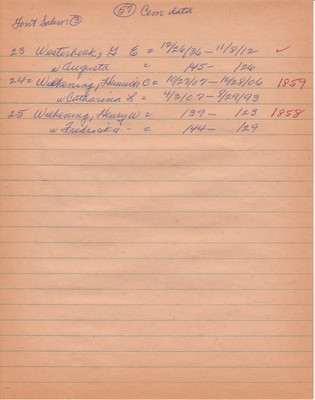 57 Cem data
Font Salem 3
23 Westerbeck, G E = 12/26/36 - 11/8/12 ✓
w Augusta = 145 - 126
24 = Wiebening, C = 10/27/07 - 10/28/06 1859
w Catharina L = 4/3/07 - 8/29/93
25 Wiebening, Henry W = 139 - 123 1858
w Fredricka - = 144 - 129